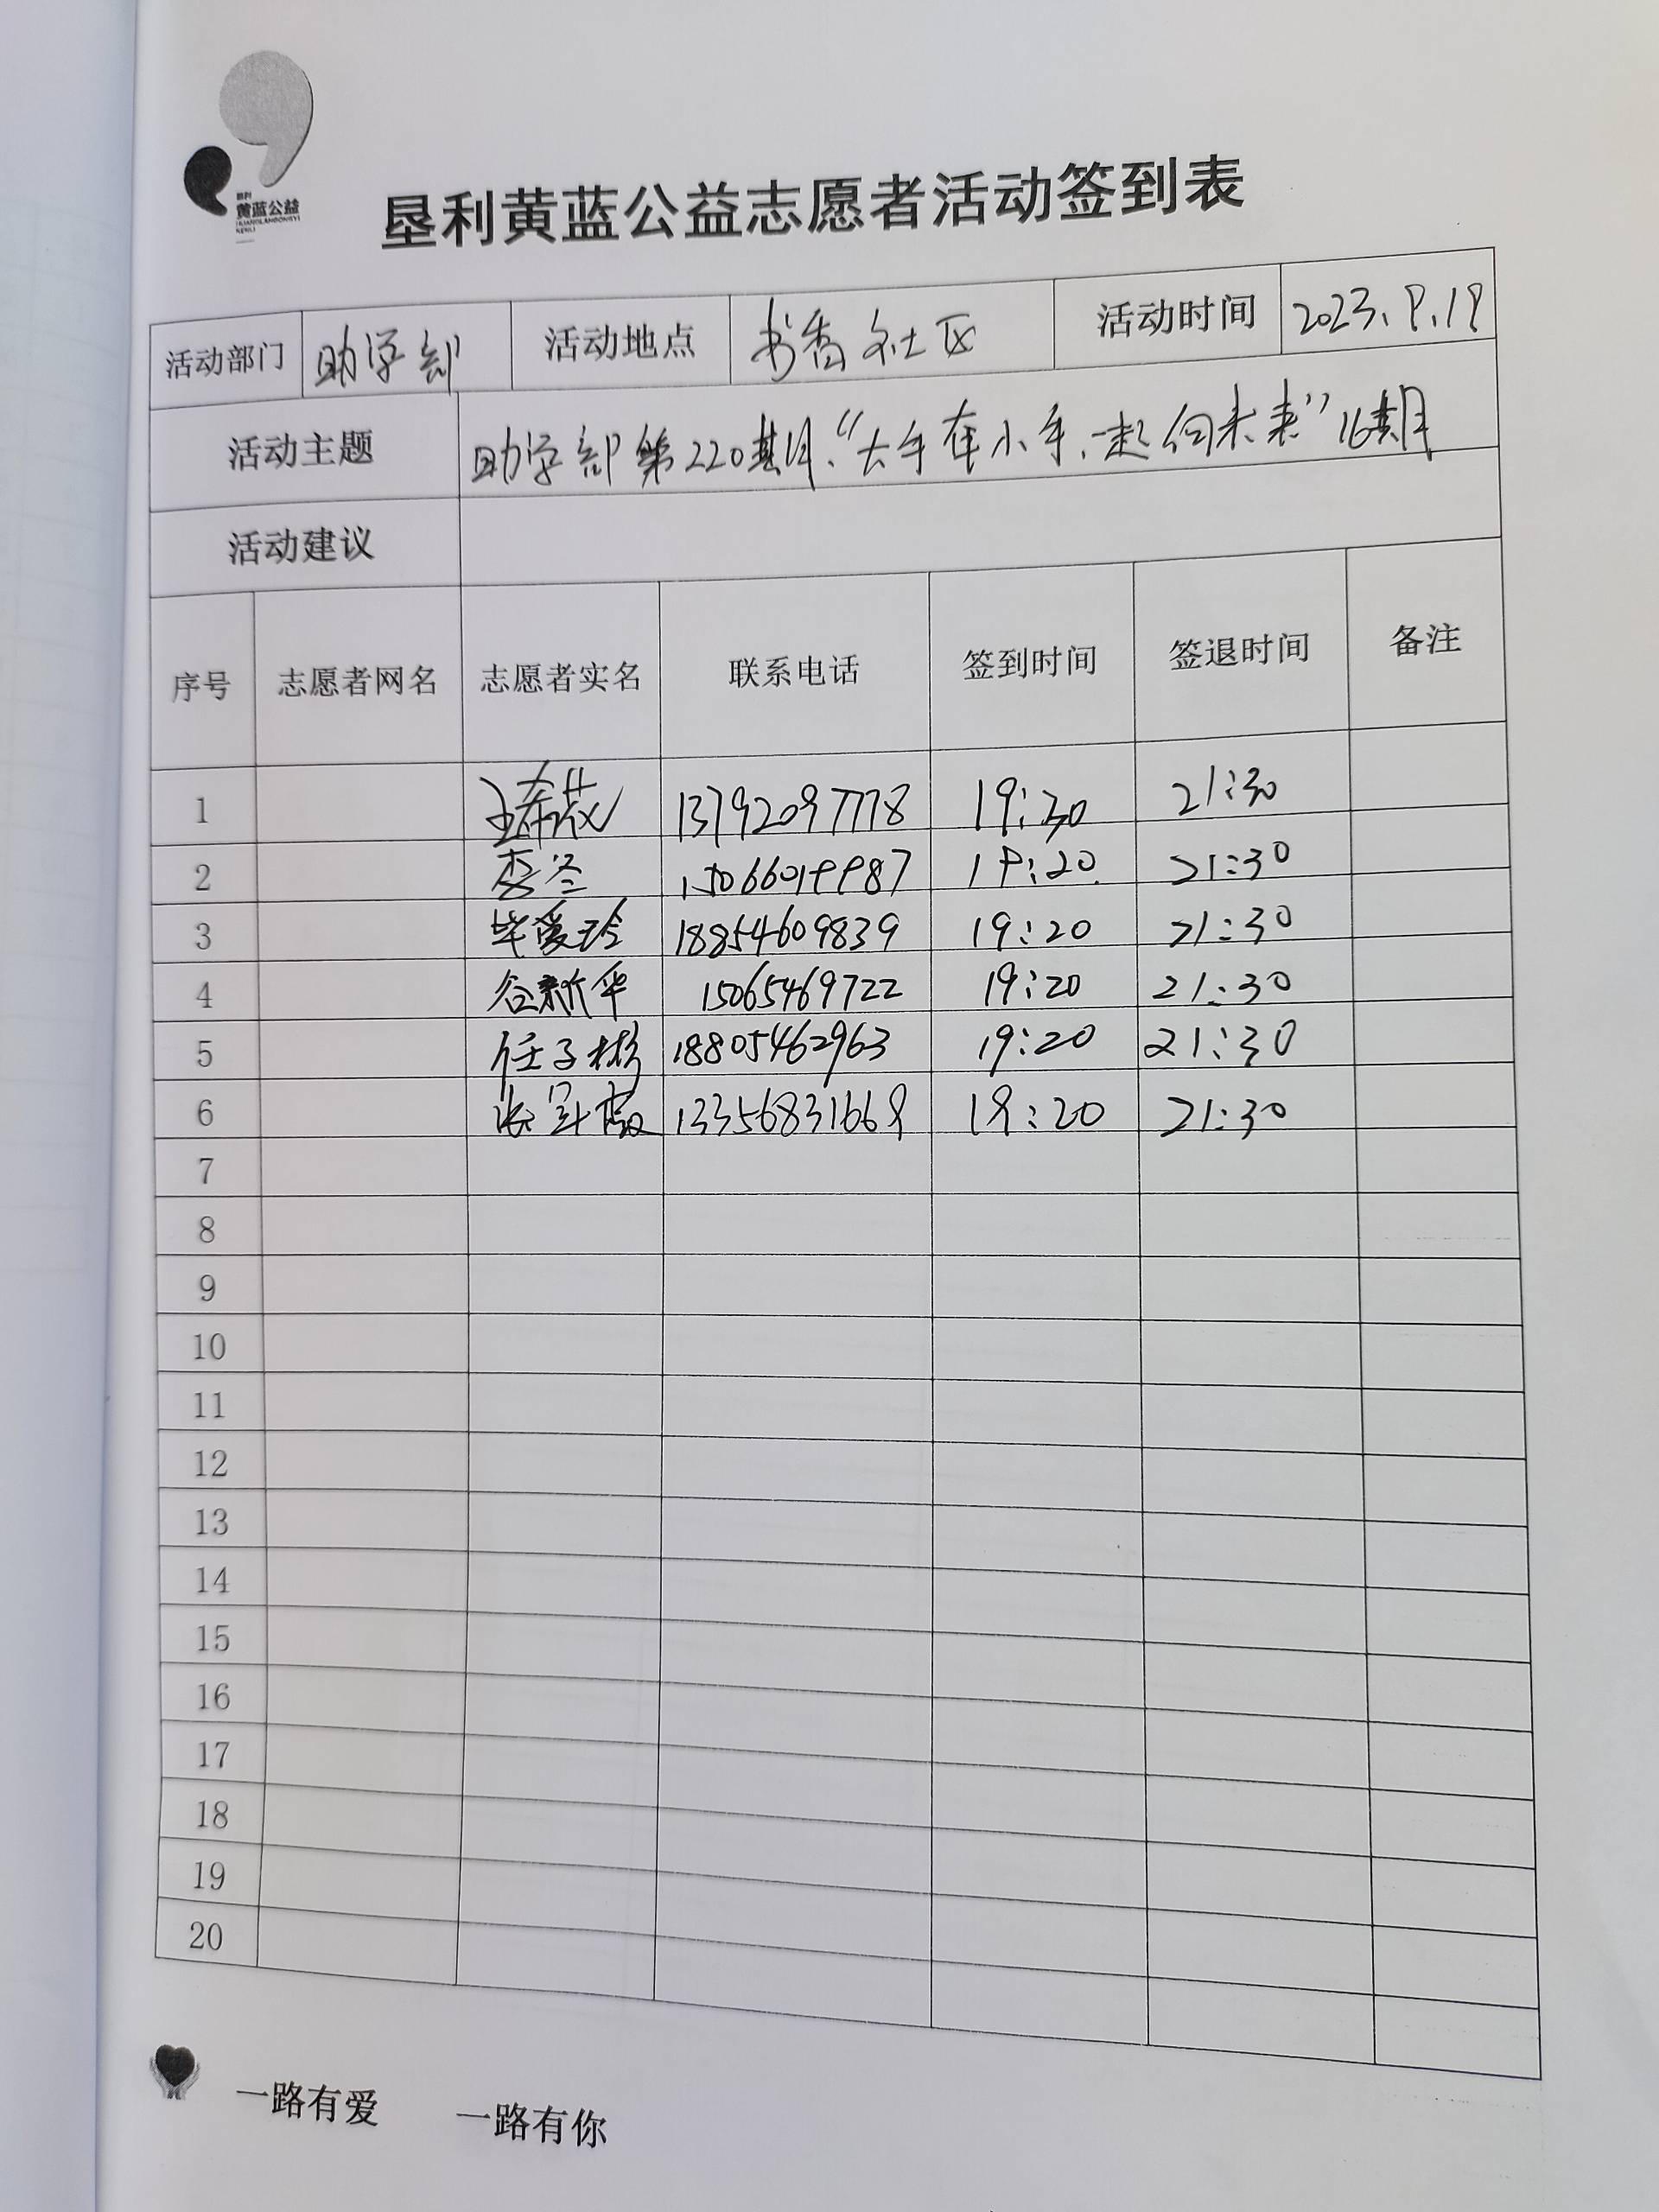 垦利
黄蓝公益
HUANGLANGONGYI
KENLI
垦利黄蓝公益志愿者活动签到表
活动部门 助学部 活动地点 书香社区 活动时间 2023.9.19
活动主题 助学部第220期.“大手牵小手,一起向未来”16期
活动建议
序号 志愿者网名 志愿者实名 联系电话 签到时间 签退时间 备注
1 13792097778 19:30 21:30
2 李冬 15066019987 19:20 21:30
3 毕爱玲 18854609839 19:20 21:30
4 谷新华 15065469722 19:20 21:30
5 任子彬 18805462963 19:20 21:30
6 13356831669 19:20 21:30
7
8
9
10
11
12
13
14
15
16
17
18
19
20
一路有爱 一路有你